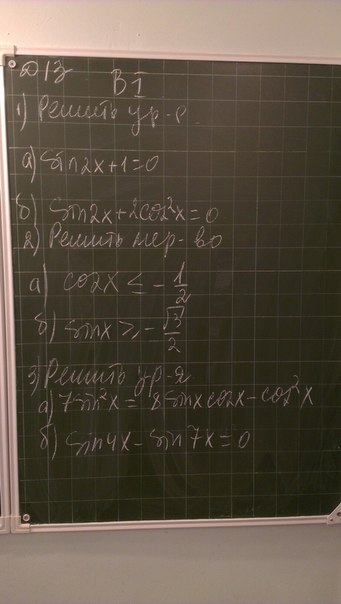 Д/З
В I
1) Решить ур-е
а) sin2x+1=0
б) sin2x+2cos²x=0
2) Решить нер-во
а) cos2x ≤ -1/2
б) sinx ≥ -√3/2
3) Решить ур-я
а) 7sin²x = 8sinxcosx-cos²x
б) sin4x-sin7x=0